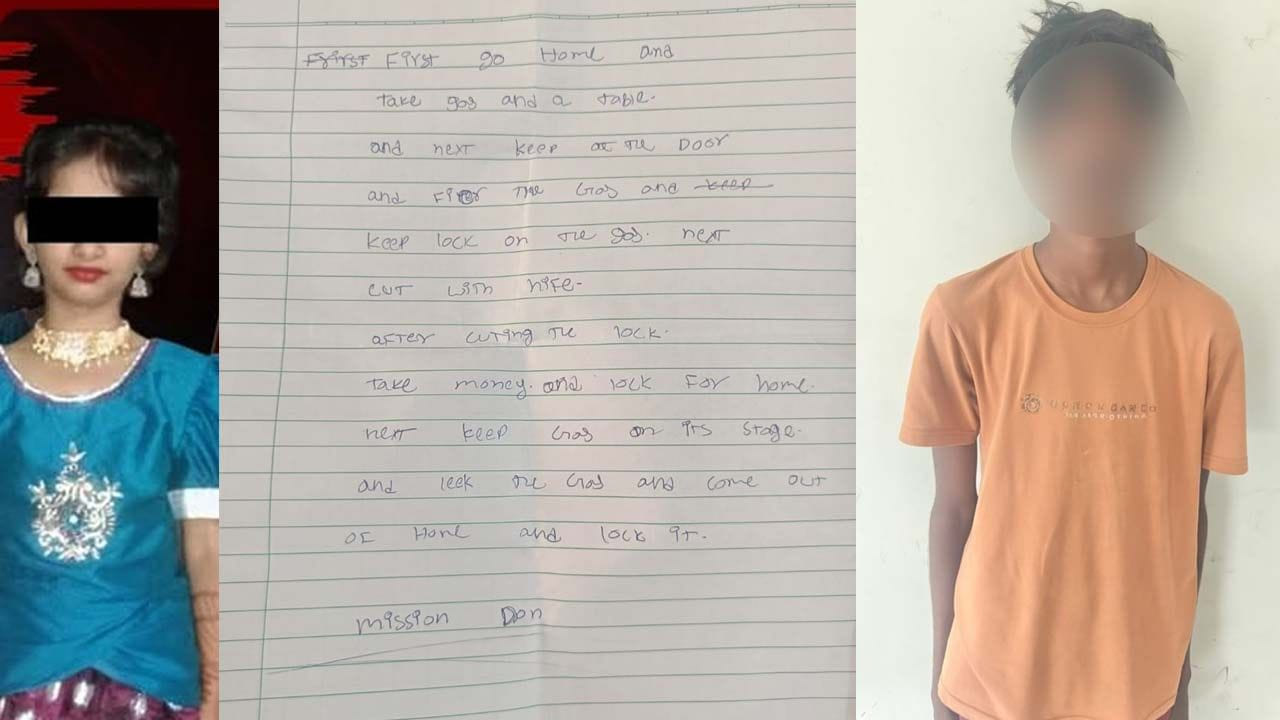 First First go Home and
take gas and a table.
and next keep at the Door
and Fier the Gas and keep
keep lock on the gas. next
cut with nife.
after cuting the lock.
take money. and lock For home.
next keep Gas on its stage.
and leek the Gas and come out
of Home and lock it.
mission Don